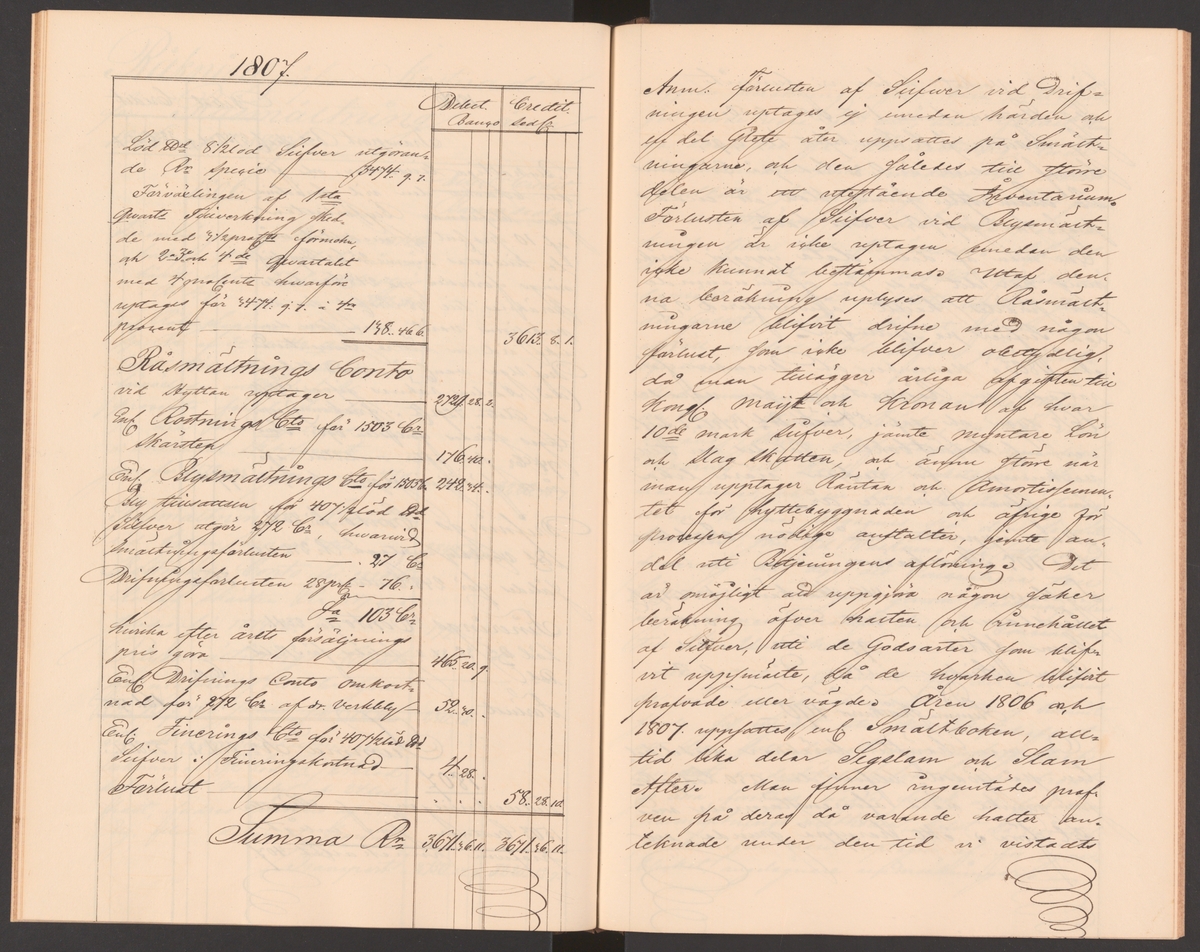 1807.
Debet. Credit.
Banco Sedl.
Löd. 8 1/2 lod Silfver utgöran-
de Rr Specie 3474. 9. 7.
Förvexlingen af 1sta
Qvartr Tillverkning sked-
de med 3 1/2 procent förmohn,
och 2. 3. och 4de Qvartalet
med 4 procents hvarför
uptages för 3474. 9. 7. à 4ra
procent 138. 46. 6. 3613. 8. 1.
Råsmältnings Conto
vid Hyttan uptager 2724. 28. 2.
Enl. Rostnings Cto för 1503 Cr
Skärsten 176. 40.
Enl. Blysmältnings Cto för 1503 242. 34.
Bly tillsattsen för 407 1/2 löd.
Silfver utgör 272 Cr, hvarvid
Smältningsförlusten 27 Cr
Drifningsförlusten 28 prC 76.
Sa 103 Cr
hvilka efter årets försäljnings
pris göra 465. 20. 9.
Enl. Drifnings Conto omkost-
nad för 272 Cr af dr. Verkbly 52. 40.
Enl. Finerings Cto för 407 1/2 löd.
Silfver i Fineringskostnad 4. 28.
Förlust 58. 28. 10.
Summa Rr 3671. 36. 11. 3671. 36. 11.
Anm. Förlusten af Silfver vid Drif-
ningen uptages ej emedan härden och
en del Glete åter uppsattes på Smält-
ningarne, och den således till större
delen är ett utestående Inventarium
Förlusten af Silfver vid Blysmält-
ningen är icke uptagen emedan den
icke kunnat bestämmas. Utaf den-
na beräkning uplyses att Råsmält-
ningarne blifvit drifne med någon
förlust, som icke blifver obetydlig,
då man tillägger årliga afgiften till
Kongl. Majt och Kronan af hvar
10de mark Silfver, jämte myntare Lön
och Slag skatten, och ännu större när
man upptager Räntan och Amortissemen-
tet för hyttebyggnaden och öfrige för
processen nödige anstalter, jemte an-
del uti Betjeningens aflöning. Det
är omöjligt att uppgjöra någon säker
beräkning öfver halten och innehållet
af Silfver, uti de Godsarter som blif-
vit uppsmälte, då de hvarken blifvit
profvade eller vägde. Åren 1806 och
1807. uppsattes, enl Smältboken, all-
tid lika delar Segslam och Slam
After. Man finner ingenstädes prof-
ven på deras då varande halter an-
teknade under den tid vi vistadts